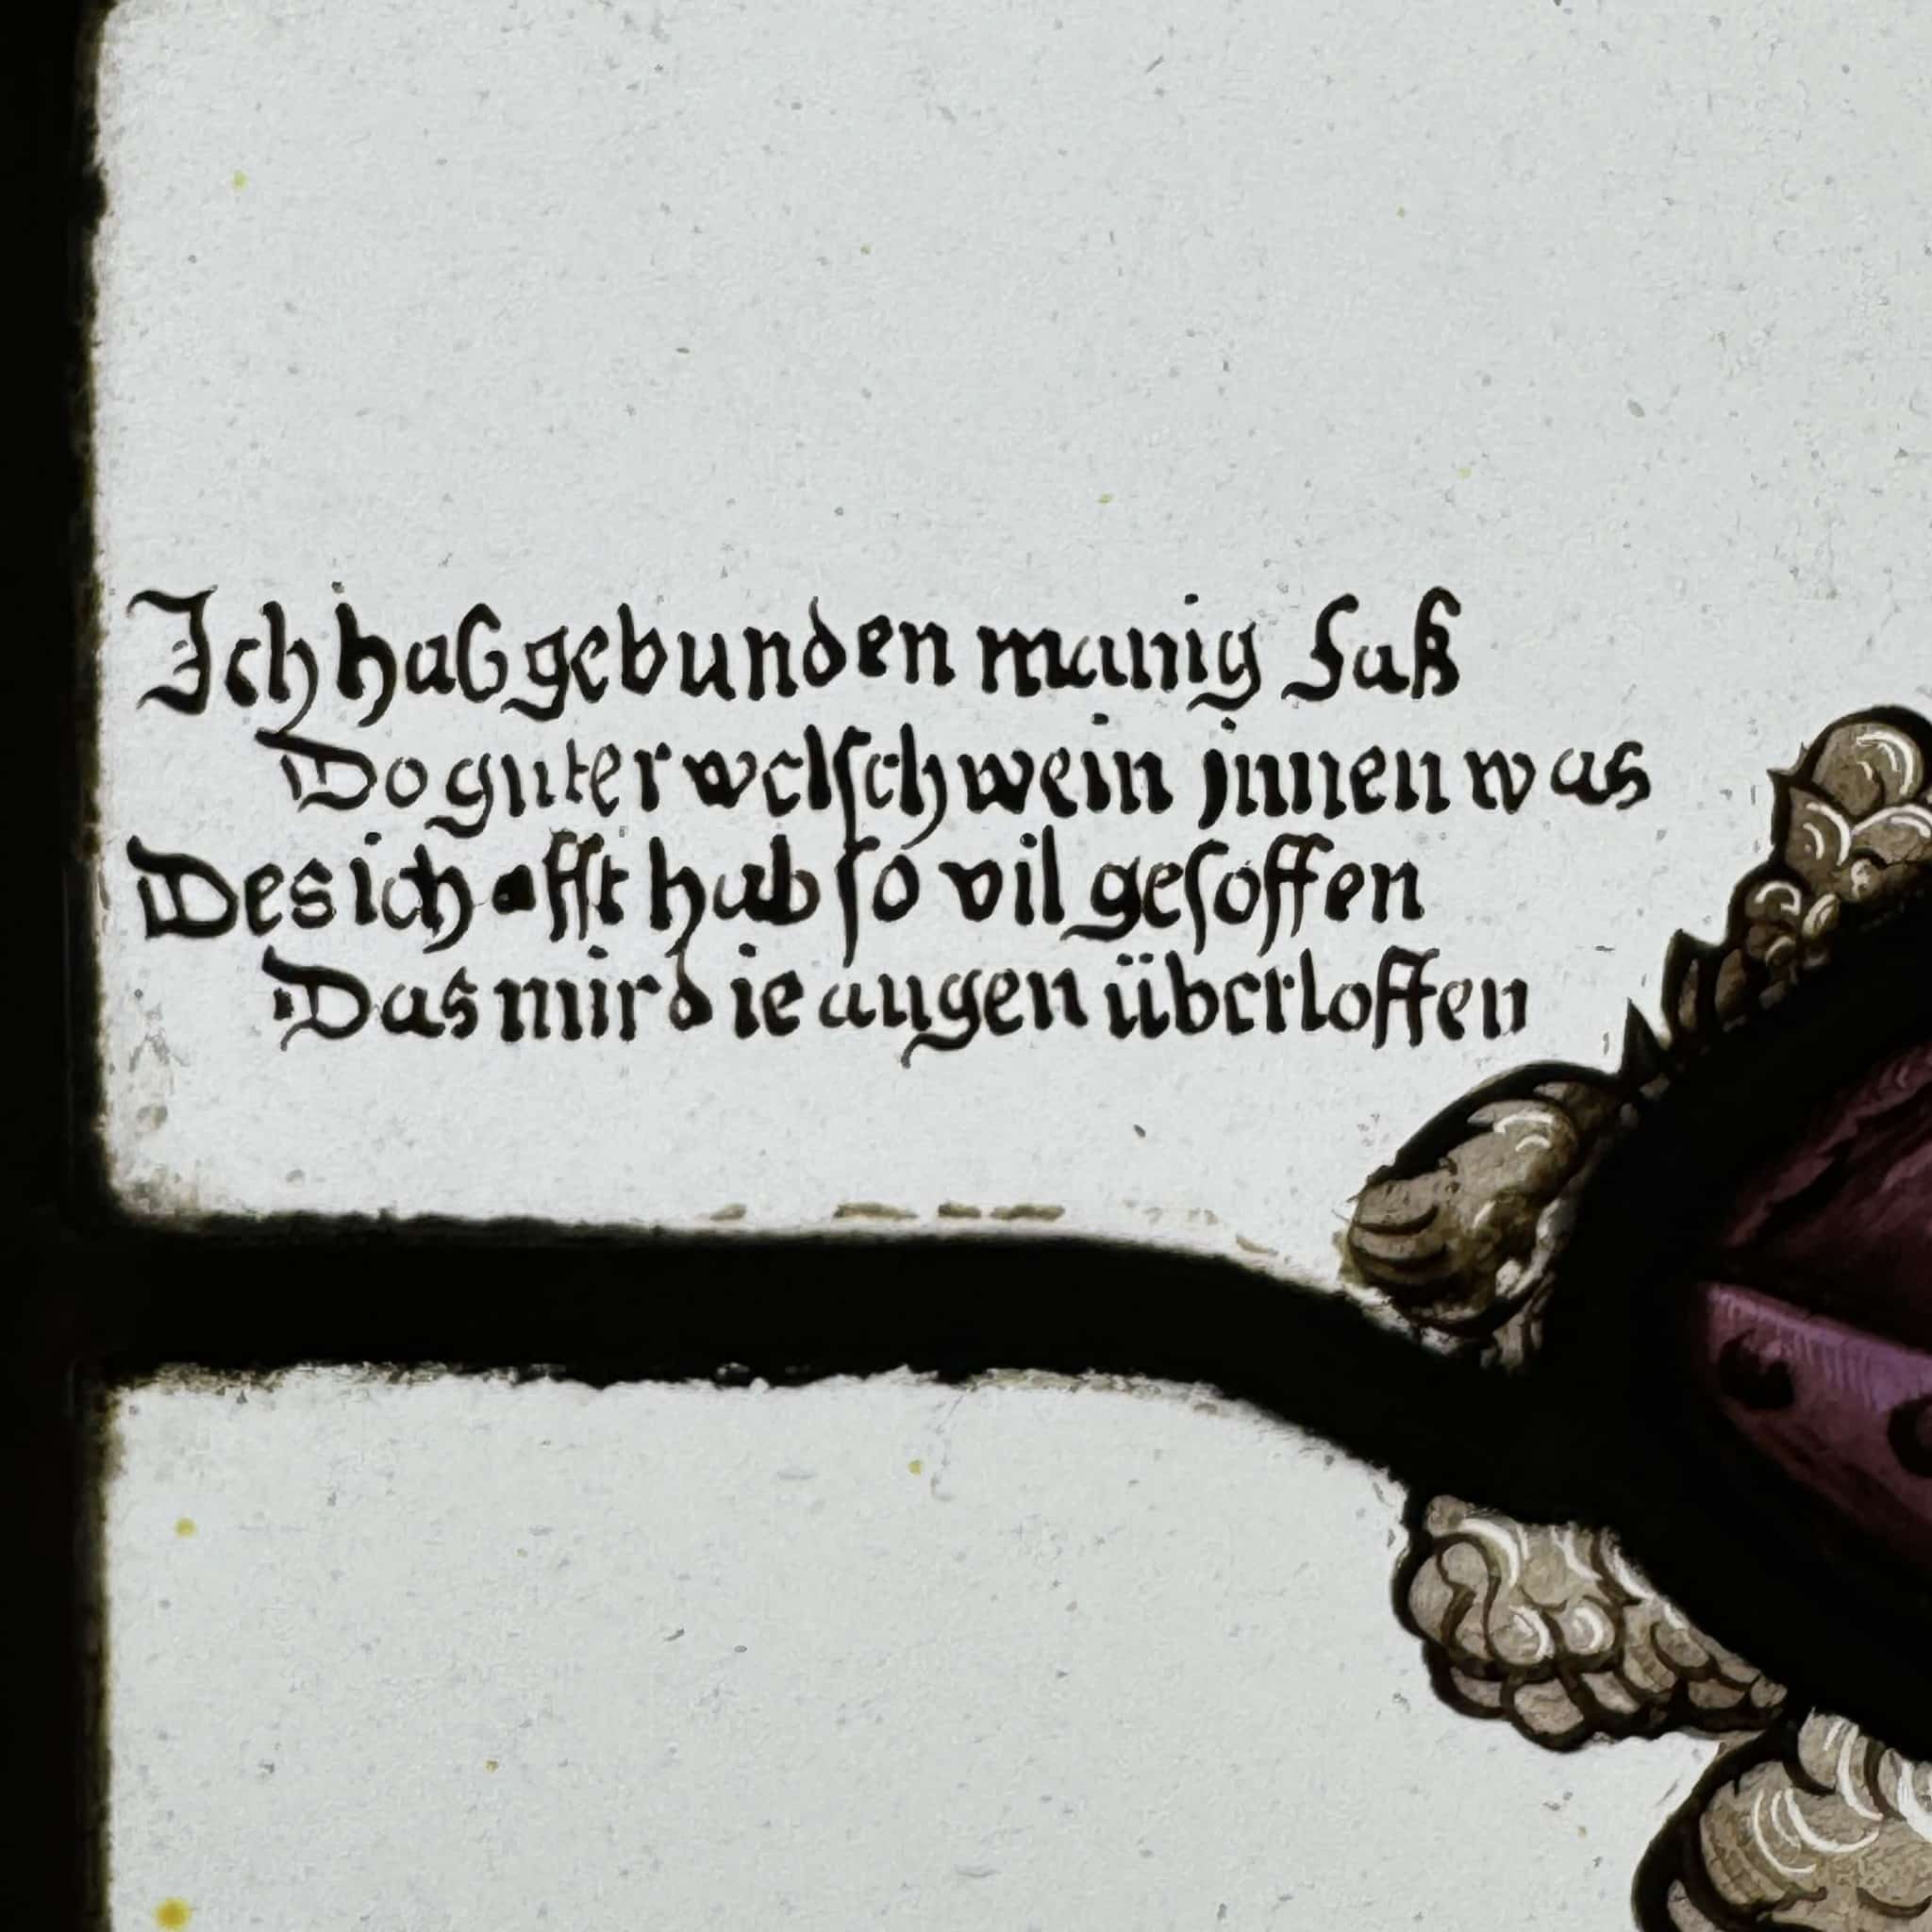 Ich hab gebunden manig faß
Do guter welsch wein jnnen was
Des ich offt hab so vil gesoffen
Das mir die augen überloffen